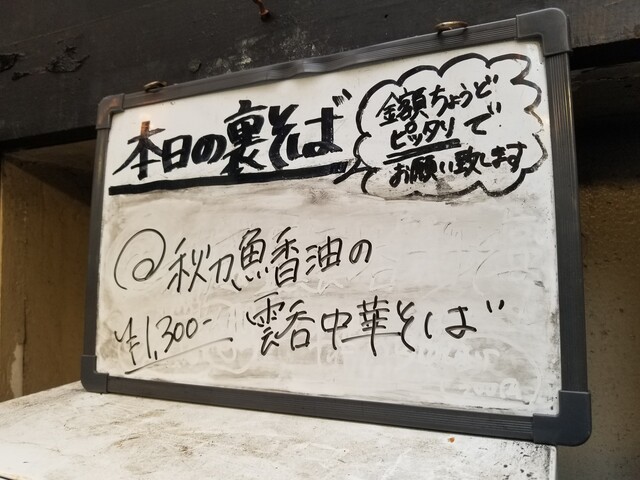 本日の裏そば
金額ちょうど
ピッタリで
お願い致します
@秋刀魚香油の
¥1,300- 雲呑中華そば